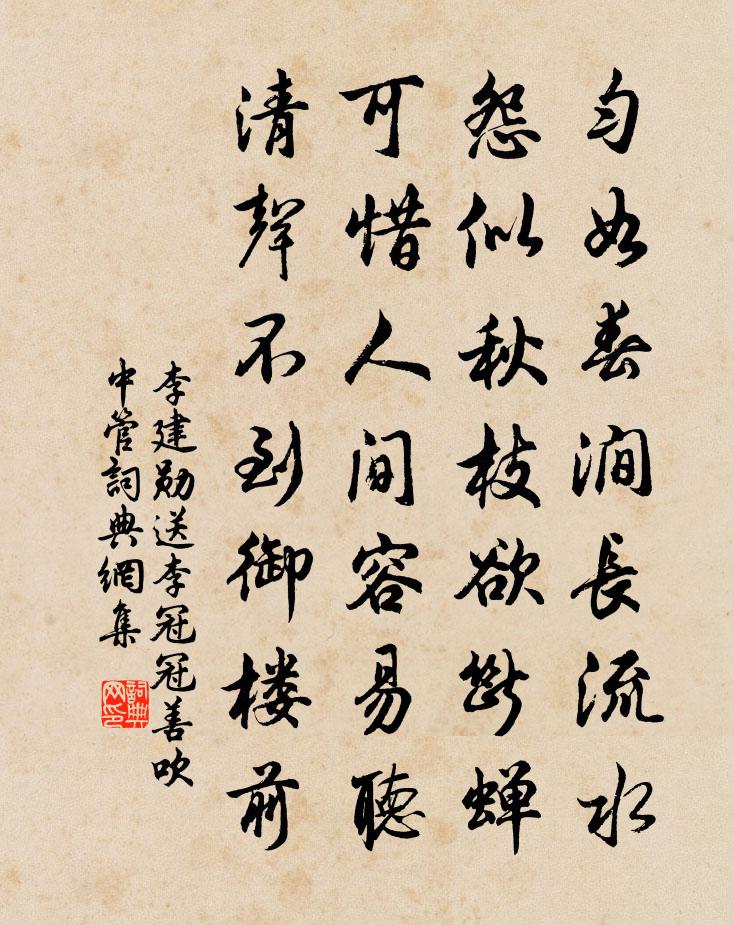 匀如春澗長流水
怨似秋枝欲断蝉
可惜人间容易聴
清聲不到御楼前
李建勋送李冠冠善吹
中管詞典網集
詞典
网印